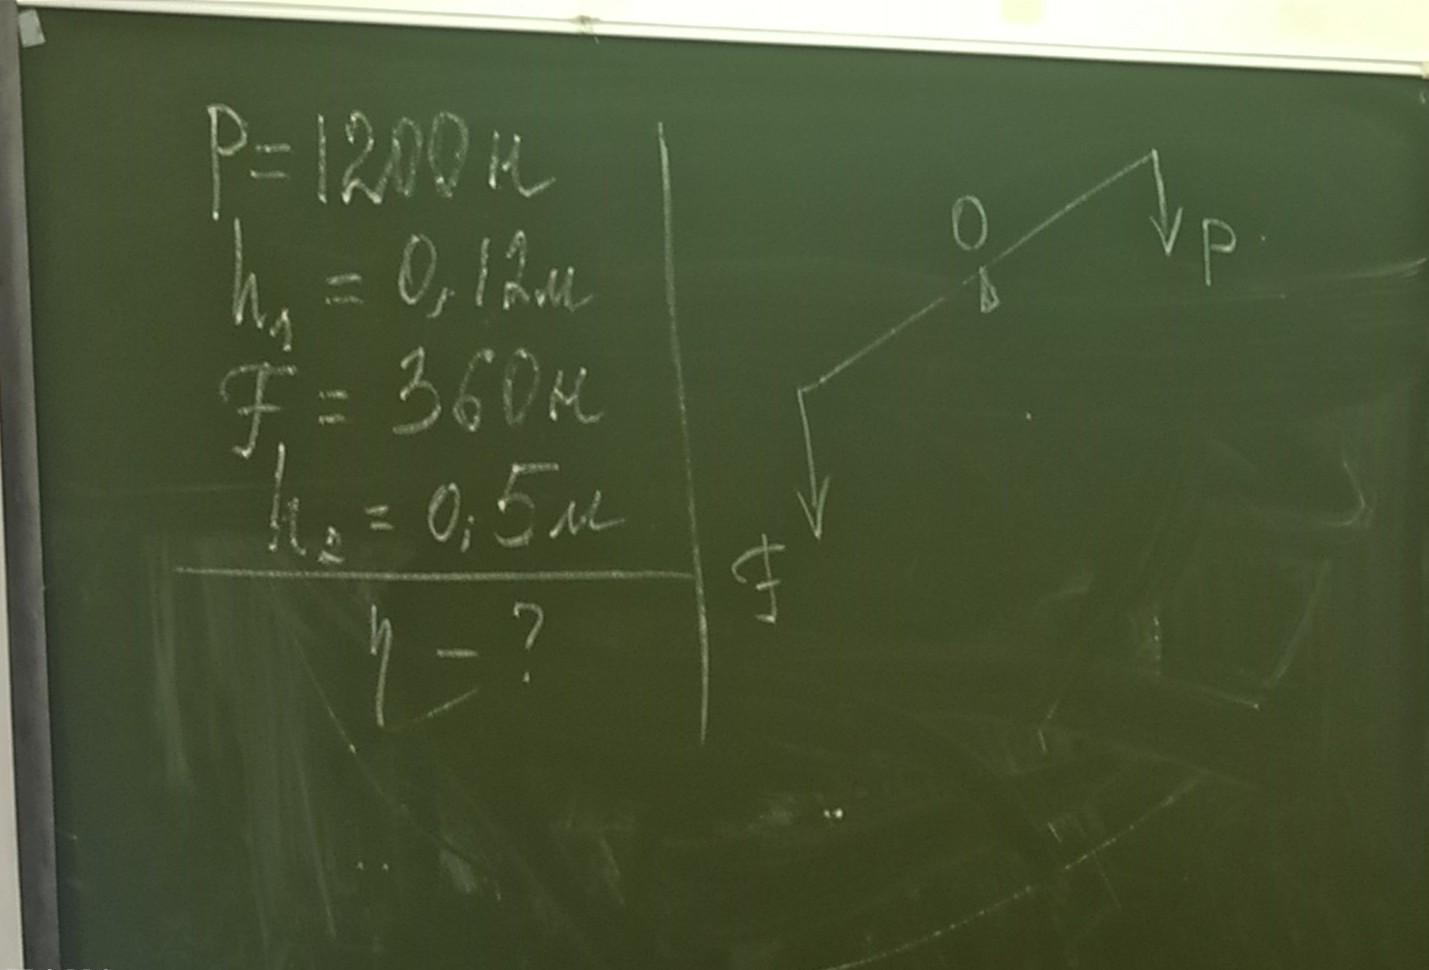 P = 1200 н
h₁ = 0,12 м
F = 360 н
h₂ = 0,5 м
η - ?
O
P
F